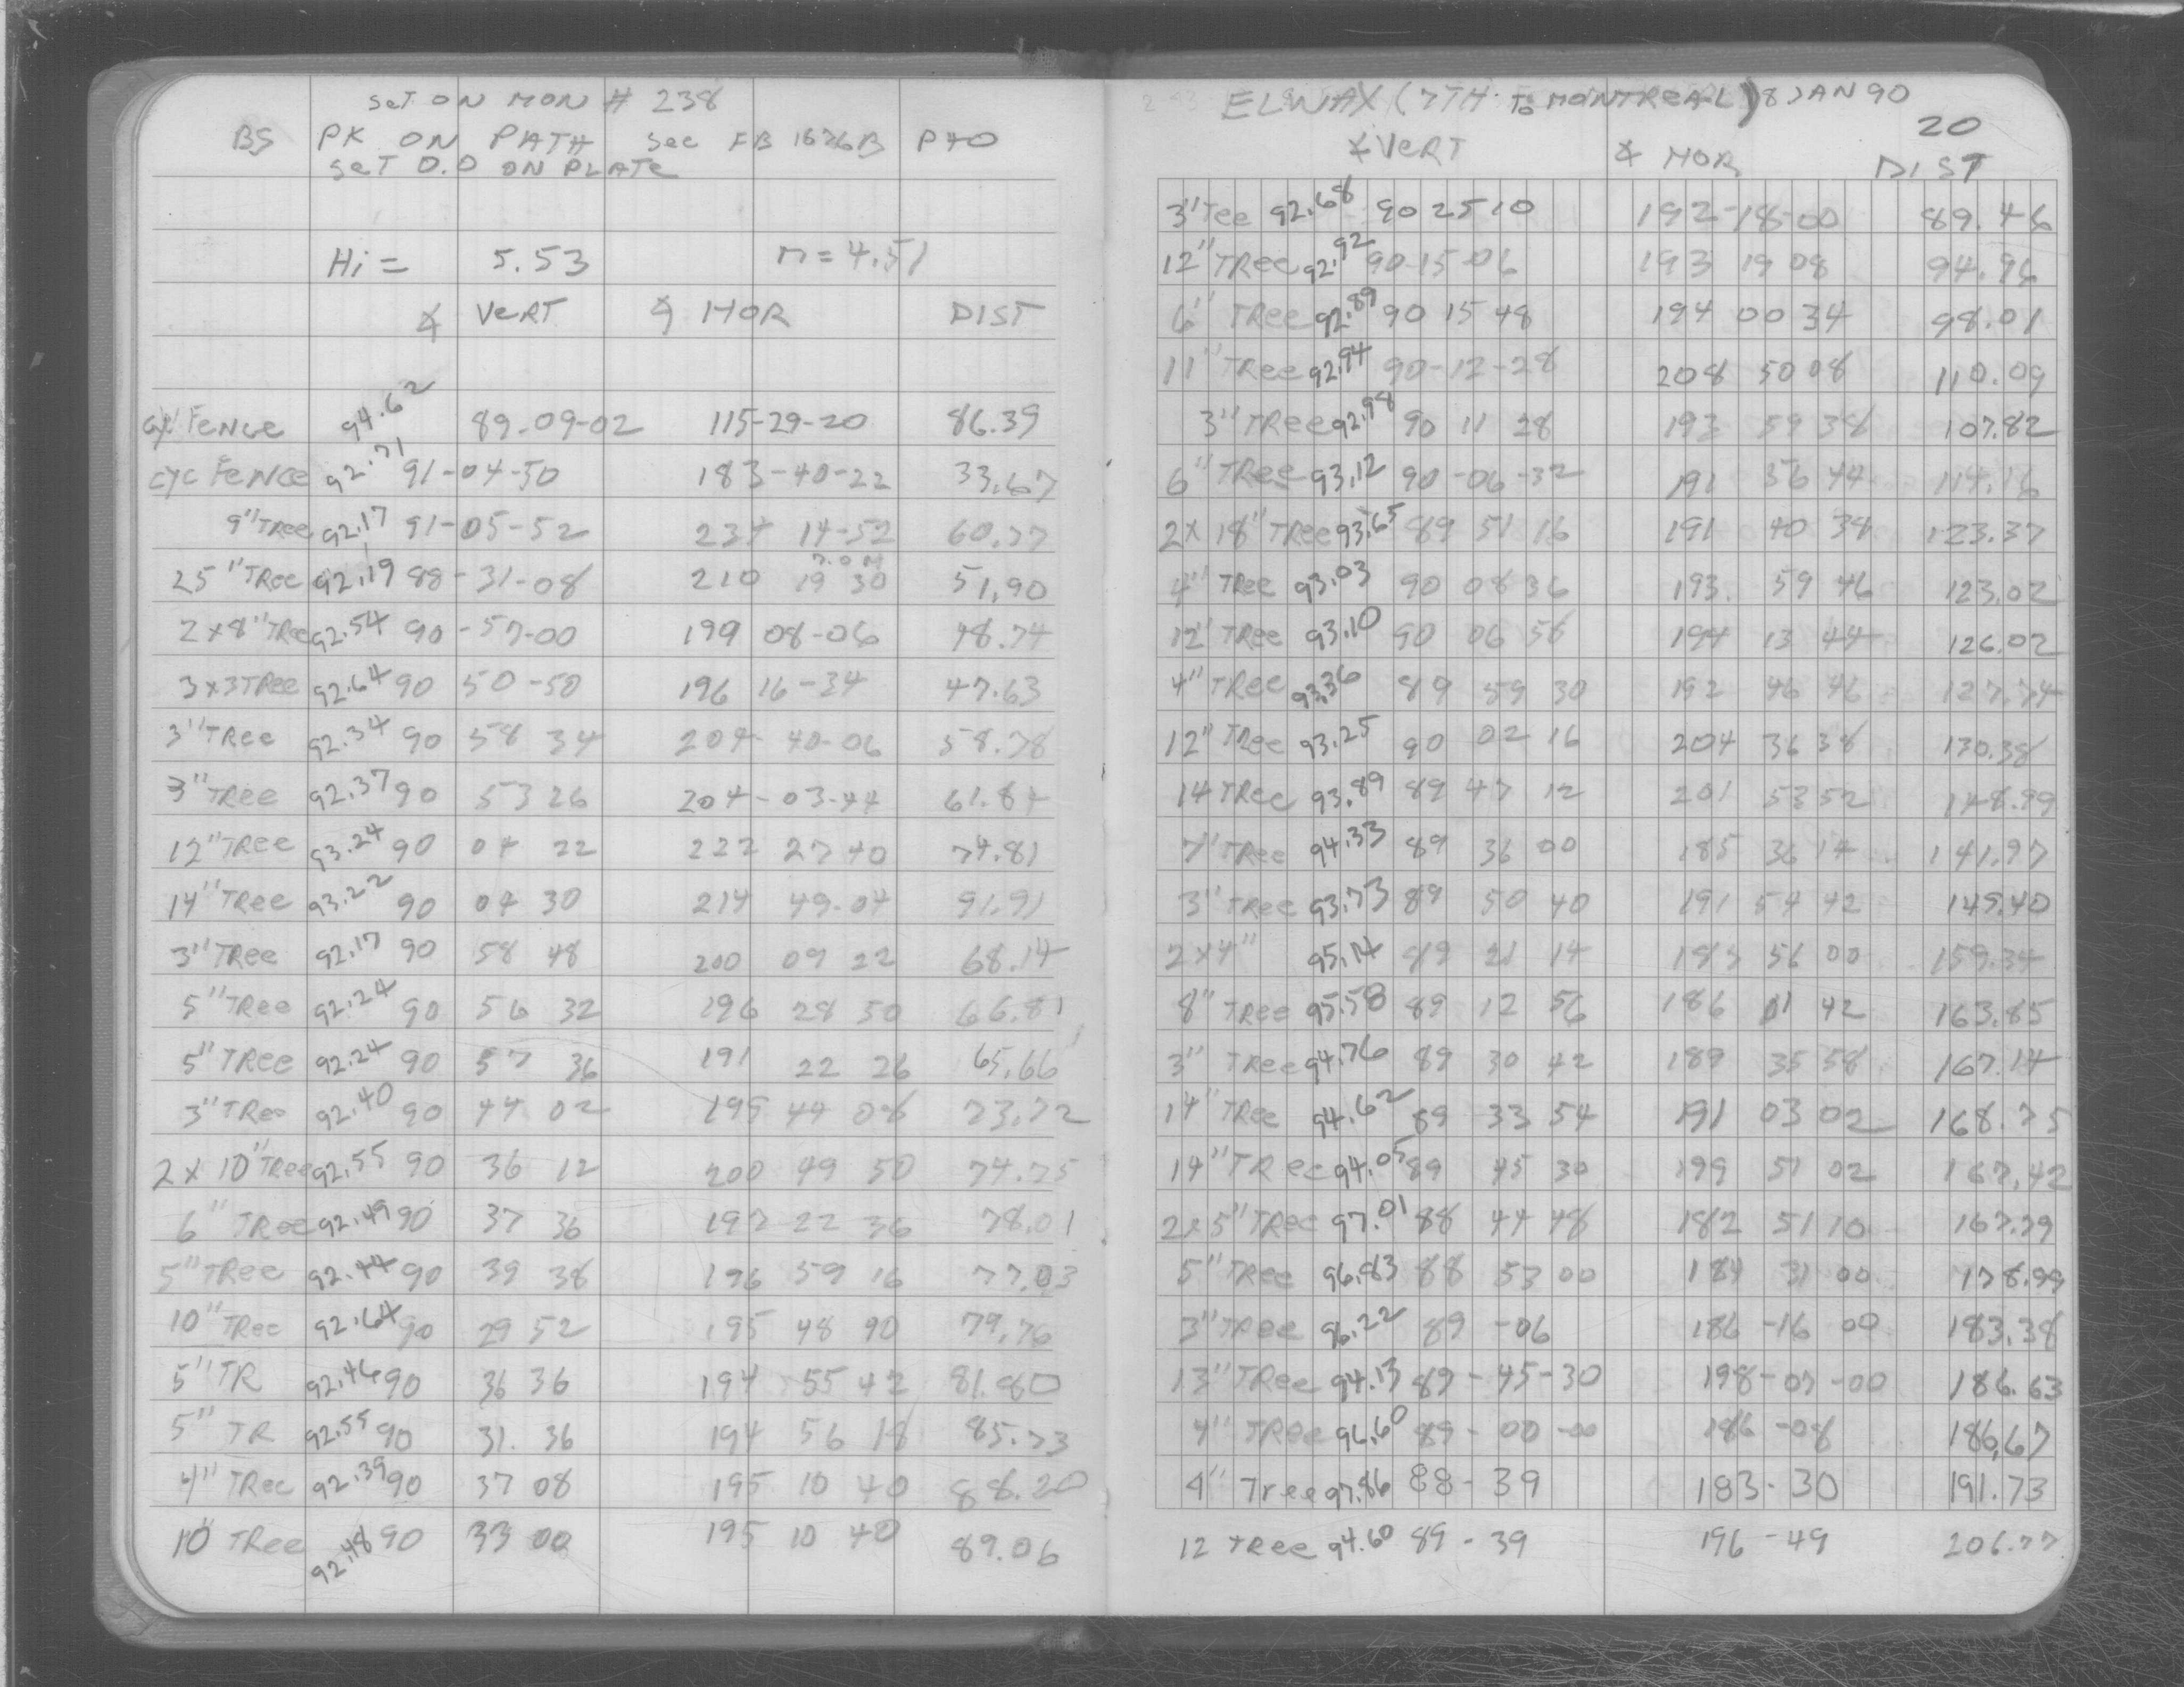 SET ON MON # 238
BS PK ON PATH SEE FB 1676B P70
SET 0.0 ON PLATE
Hi = 5.53 n = 4.51
∡ VERT ∡ HOR DIST
FENCE 94.62 89-09-02 115-29-20 86.39
CYC FENCE 92.71 91-04-50 183-40-22 33.67
9" TREE 92.17 91-05-52 234 14-52 60.77
25" TREE 92.19 88-31-08 210 19 30 51.90
2x8" TREE 92.54 90-57-00 199 08-06 48.74
3x3 TREE 92.64 90 50-50 196 16-34 47.63
3" TREE 92.34 90 58 34 204-40-06 58.78
3" TREE 92.37 90 53 26 204-03-44 61.84
12" TREE 93.24 90 04 22 222 27 40 74.81
14" TREE 93.22 90 04 30 214 49-04 91.91
3" TREE 92.17 90 58 48 200 09 22 68.14
5" TREE 92.24 90 56 32 196 28 50 66.81
5" TREE 92.24 90 57 36 191 22 26 65.66
3" TREE 92.40 90 44 02 199 44 08 73.72
2 x 10" TREE 92.55 90 36 12 200 49 50 74.75
6" TREE 92.49 90 37 36 197 22 36 78.01
5" TREE 92.44 90 39 38 196 59 16 77.03
10" TREE 92.64 90 29 52 195 48 90 79.76
5" TR 92.46 90 36 36 194 55 42 81.80
5" TR 92.55 90 31. 36 194 56 18 85.73
4" TREE 92.39 90 37 08 195 10 40 88.20
10" TREE 92.48 90 33 00 195 10 40 89.06
ELWAX (7TH TO MONTREAL) 8 JAN 90
20
∡ VERT ∡ HOR DIST
3" Tee 92.68 90 25 10 192-18-00 89.46
12" TREE 92.92 90-15-06 193 19 08 94.96
6" TREE 92.89 90 15 48 194 00 34 98.01
11" TREE 92.94 90-12-28 208 50 08 110.09
3" TREE 92.98 90 11 28 193 59 38 107.82
6" TREE 93.12 90-06-32 191 36 44 114.16
2x 18" TREE 93.65 89 51 16 191 40 34 123.37
4" TREE 93.03 90 08 36 193. 59 46 123.02
12" TREE 93.10 90 06 56 194 13 44 126.02
4" TREE 93.36 89 59 30 192 46 46 127.74
12" TREE 93.25 90 02 16 204 36 38 130.38
14 TREE 93.89 89 47 12 201 53 52 148.99
7" TREE 94.33 89 36 00 185 36 14 141.97
3" TREE 93.73 89 50 40 191 54 42 149.40
2x4" 95.14 89 21 14 56 00 159.34
8" TREE 95.58 89 12 56 186 01 42 163.85
3" TREE 94.76 89 30 42 189 35 58 167.14
14" TREE 94.62 89 33 54 191 03 02 168.75
14" TREE 94.05 89 45 30 199 51 02 167.42
2x5" TREE 97.01 88 44 48 182 51 10 167.79
5" TREE 96.83 88 53 00 184 31 00 178.99
3" TREE 96.22 89-06 186-16 00 183.38
13" TREE 94.13 89-45-30 198-07-00 186.63
4" TREE 96.60 89-00-00 186-08 186.67
4" Tree 97.86 88-39 183-30 191.73
12 TREE 94.60 89-39 196-49 206.77